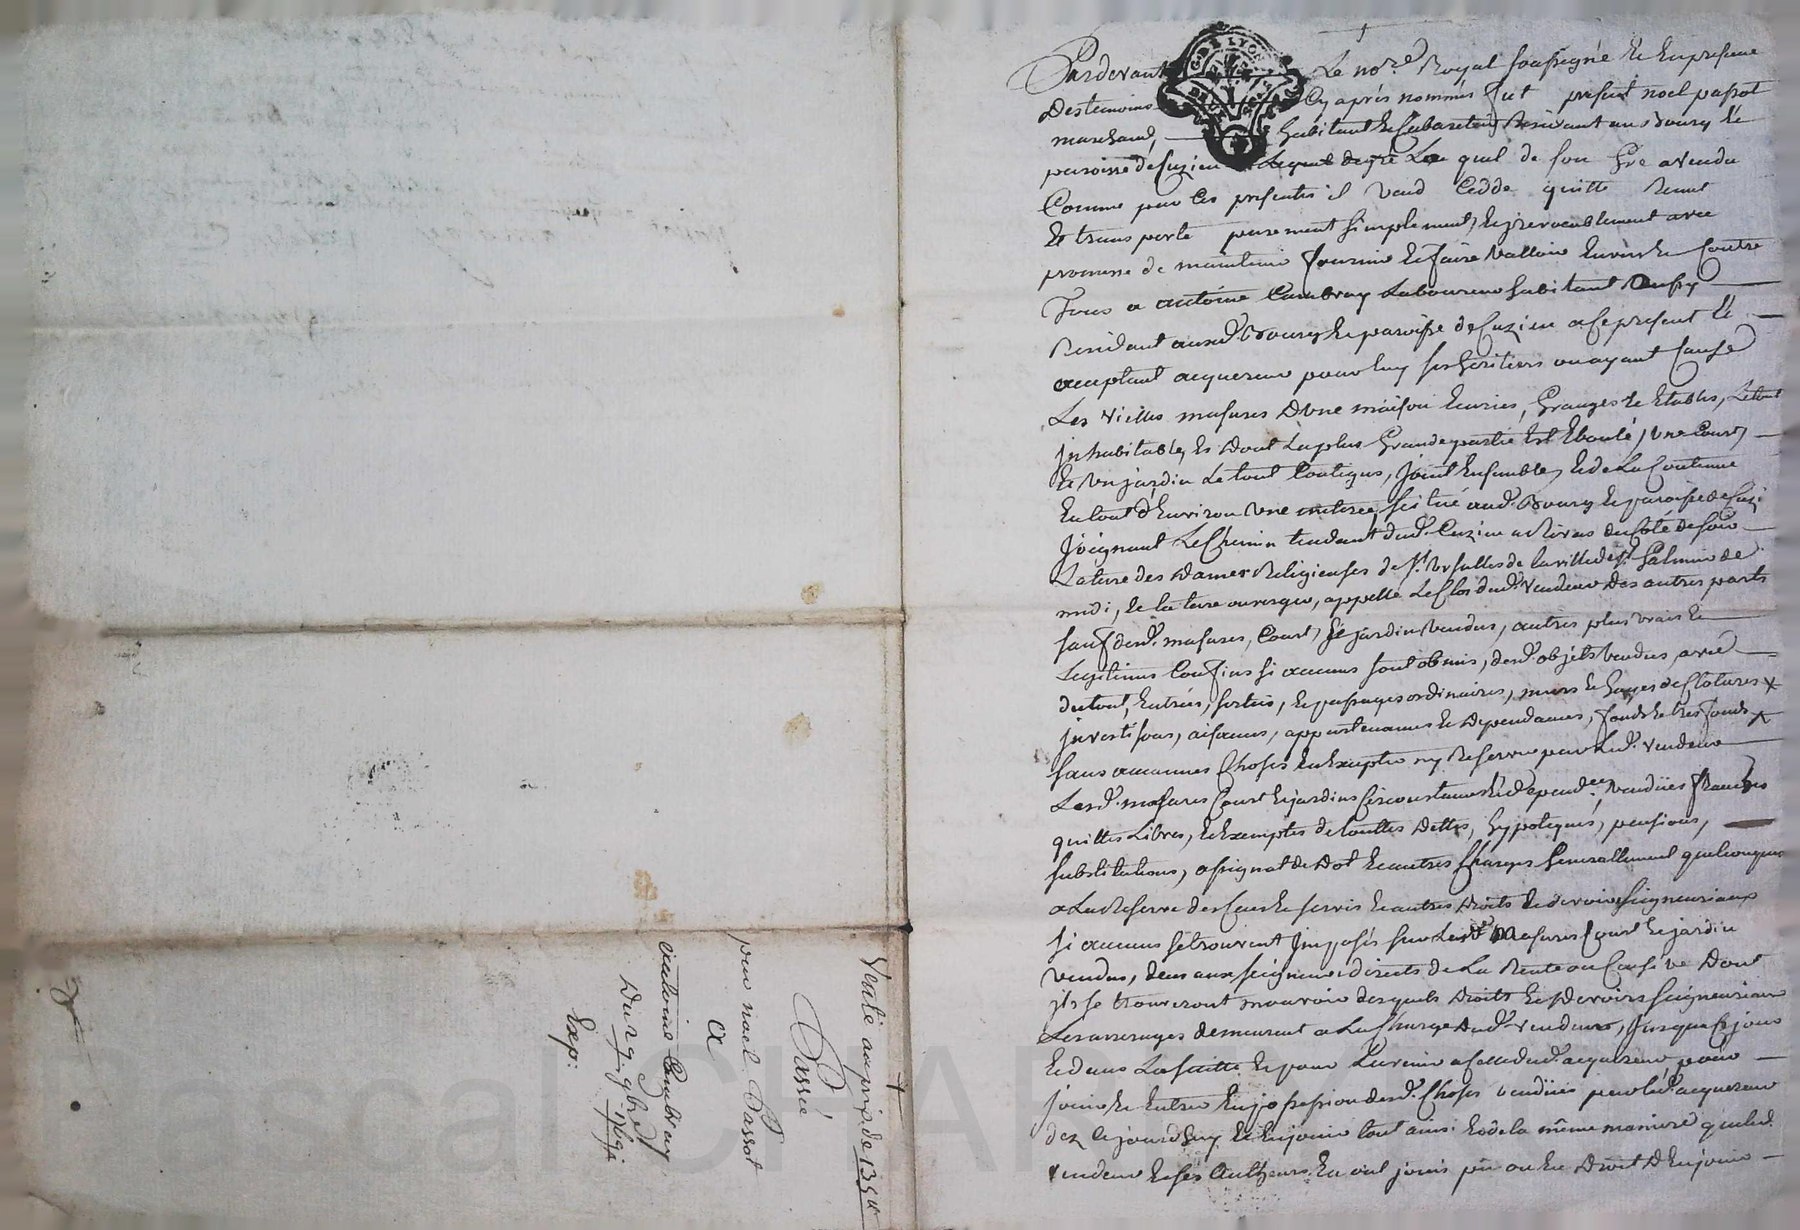 Pardevant Le no.re Royal soussigné Et En presence
Des temoins Cy après nommés fut present noel passot
marchand, habitant Et Cabaretier Residant au Bourg Et
paroisse de Cuzieu Lequel de gré Le quel de son Gré a vendu
Comme par Ces presentes il vend Cedde quitte Remet
Et transporte purement simplement, Et jrrevocablement avec
promesse de maintenir fournir Et faire Valloir Envers Et Contre
Tous a antoine Cambray Laboureur habitant
Residant aud.t Bourg Et paroisse de Cuzieu a Ce present Et
acceptant acquereur pour luy ses heritiers ou ayant Cause
Les vieilles masures D'une maison Ecuries, Granges Et Etables, Le tout
jnhabitable, Et Dont La plus Grande partie Est Eboulé, une Cour,
Et un jardin Le tout Contigus, joint Ensemble, Et de La Contenue
En tout d'Environ Une meterée, situé aud. Bourg Et paroisse de Cuzi
Joignant Le Chemin tendant dud. Cuzieu a Rivas du Coté de soir
La terre des Dames Religieuses de S.t Ursulles de la ville de S.t Galmier de
midi, Et la terre ou verger, appellé Le Clos dud. Vendeur Des autres parts
sauf desd. masures, Cour, Et jardin Vendus, autres plus vrais Et
Legitimes Confins si aucuns sont obmis, desd. objets Vendus avec
du tout, Entrées, sorties, Et passages ordinaires, murs Et hayes de Clotures
jnvestisons, aisances, appartenances Et Dependances, fonds Et tres fonds
sans aucunes Choses En Excepter ny Reserver par Led. Vendeur
Lesd. masures Cour Et jardin Circonstances Et depend.ces vendües franches
quittes Libres, Et Exemptes de touttes Dettes, hypoteques, pensions,
substitutions, assignat de Dot Et autres Charges Generallement quelconques
a La Reserve des Cens Et servis Et autres Droits Et devoirs seigneuriaux
si aucuns se trouvent Jmposés sur Lesd. Masures Cour Et jardin
vendus, deus aux seigneurs directs de La Rente ou Censive Dont
jls se trouveront mouvoir desquels Droits Et Devoirs seigneuriaux
Les arrerages demeurent a La Charge Dud. vendeur, Jusqua Ce jour
Et dans La suitte Et pour L'avenir a Celle dud. acquereur pour
jouir Et Entrer En possession desd. Choses vendües par led. acquereur
dez Ce jourd'huy Et En jouir tout ainsi Et de la même maniere que led.
vendeur Et ses Autheurs En ont jouis pû ou Eu Droit D'En jouir
Vente au prix de 135 ᵗᵗ
Passée
par noel Passot
a
antoine Cambray
Du 29. 9bre
Exp: